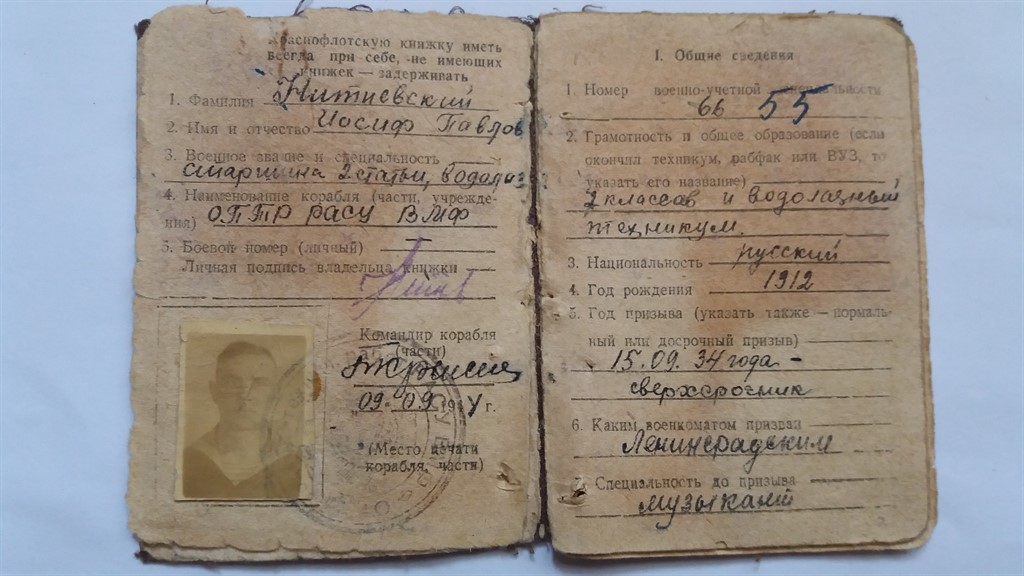 Краснофлотскую книжку иметь
всегда при себе, не имеющих
книжек — задерживать
1. Фамилия Нитиевский
2. Имя и отчество Иосиф Павлов
3. Военное звание и специальность
старшина 2 статьи, водолаз
4. Наименование корабля (части, учрежде-
ния) ОПТР РАСУ ВМФ
5. Боевой номер (личный) —
Личная подпись владельца книжки
Командир корабля
(части)
„09. 09. 1944 г.
(Место печати
корабля, части)
I. Общие сведения
1. Номер военно-учетной специальности
66 55
2. Грамотность и общее образование (если
окончил техникум, рабфак или ВУЗ, то
указать его название)
7 классов и водолазный
техникум.
3. Национальность русский
4. Год рождения 1912
5. Год призыва (указать также — нормаль-
ный или досрочный призыв)
15.09.34 года -
сверхсрочник
6. Каким военкоматом призван
Ленинградским
7. Специальность до призыва
музыкант